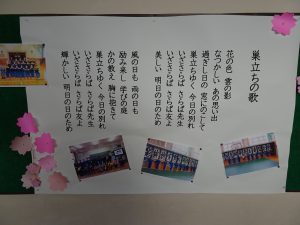 巣立ちの歌
花の色 雲の影
なつかしい あの思い出
過ぎし日の 窓にのこして
巣立ちゆく 今日の別れ
いざさらば さらば先生
いざさらば さらば友よ
美しい 明日の日のため
風の日も 雨の日も
励み来し 学びの庭
かの教え 胸に抱きて
巣立ちゆく 今日の別れ
いざさらば さらば先生
いざさらば さらば友よ
輝かしい 明日の日のため